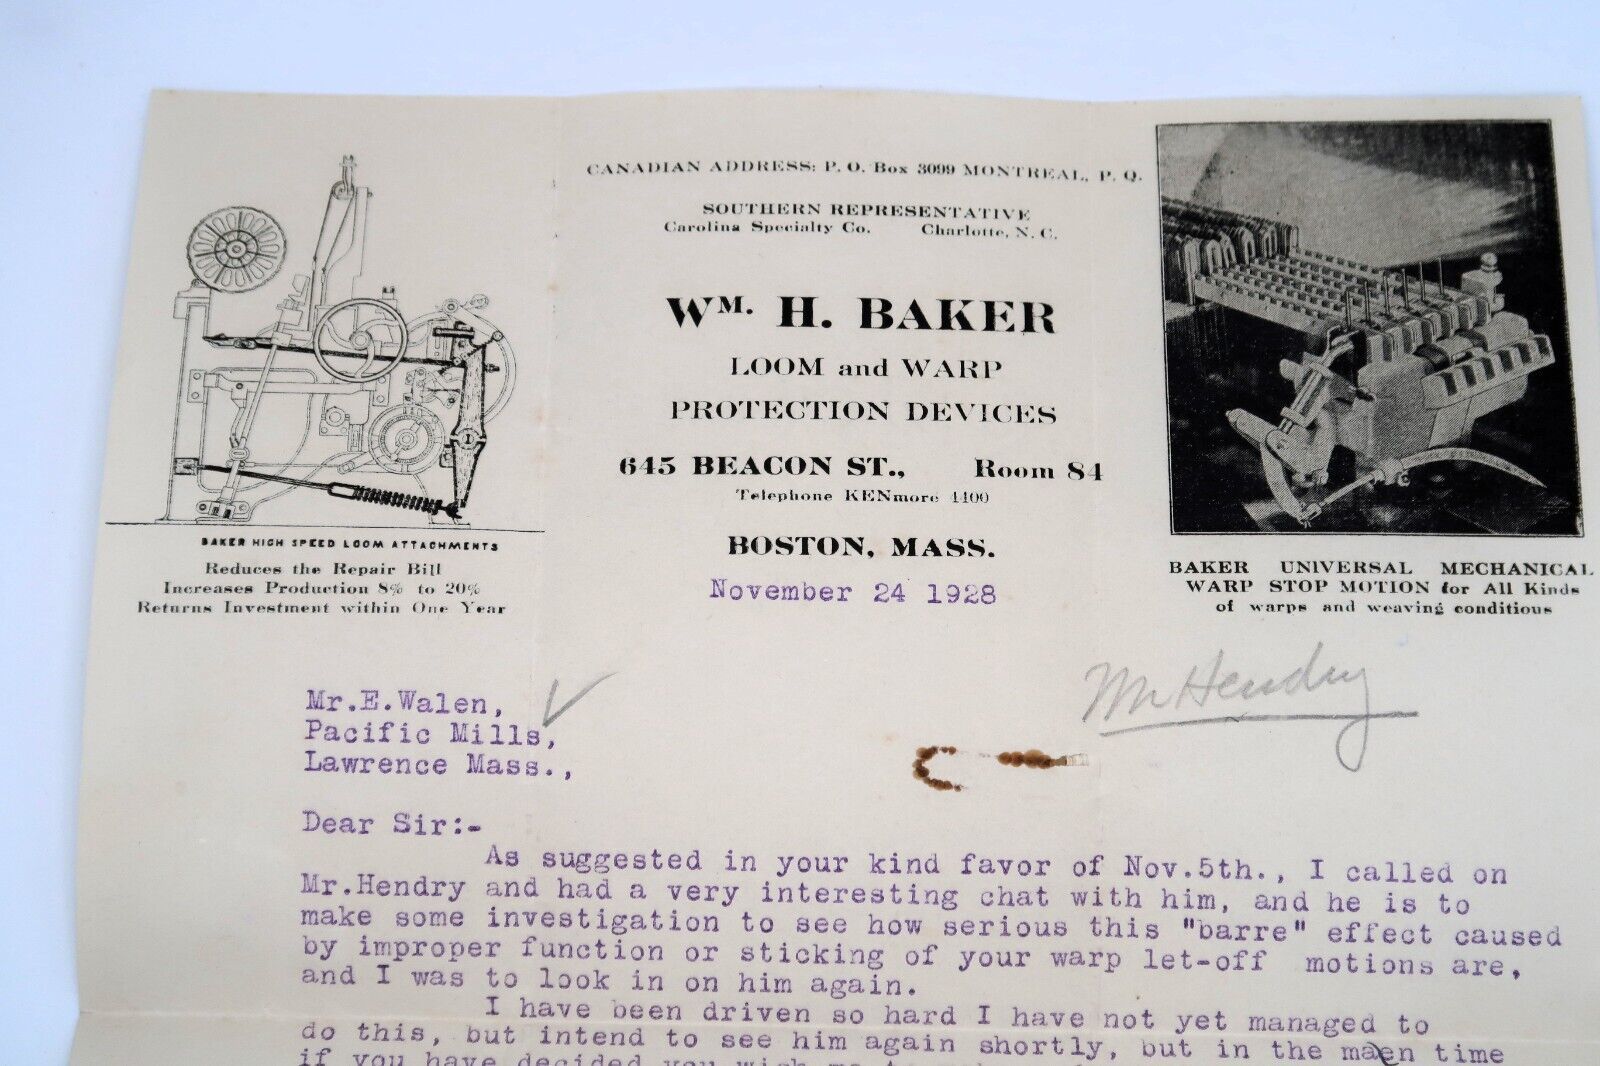 CANADIAN ADDRESS: P. O. Box 3099 MONTREAL, P. Q.
SOUTHERN REPRESENTATIVE
Carolina Specialty Co. Charlotte, N. C.
WM. H. BAKER
LOOM and WARP
PROTECTION DEVICES
645 BEACON ST., Room 84
Telephone KENmore 4400
BOSTON, MASS.
BAKER HIGH SPEED LOOM ATTACHMENTS
Reduces the Repair Bill
Increases Production 8% to 20%
Returns Investment within One Year
BAKER UNIVERSAL MECHANICAL
WARP STOP MOTION for All Kinds
of warps and weaving conditions
November 24 1928
Mr Hendry
Mr.E.Walen,
Pacific Mills,
Lawrence Mass.,
Dear Sir:-
As suggested in your kind favor of Nov.5th., I called on
Mr.Hendry and had a very interesting chat with him, and he is to
make some investigation to see how serious this "barre" effect caused
by improper function or sticking of your warp let-off motions are,
and I was to look in on him again.
I have been driven so hard I have not yet managed to
do this, but intend to see him again shortly, but in the maen time
if you have decided you wish me to